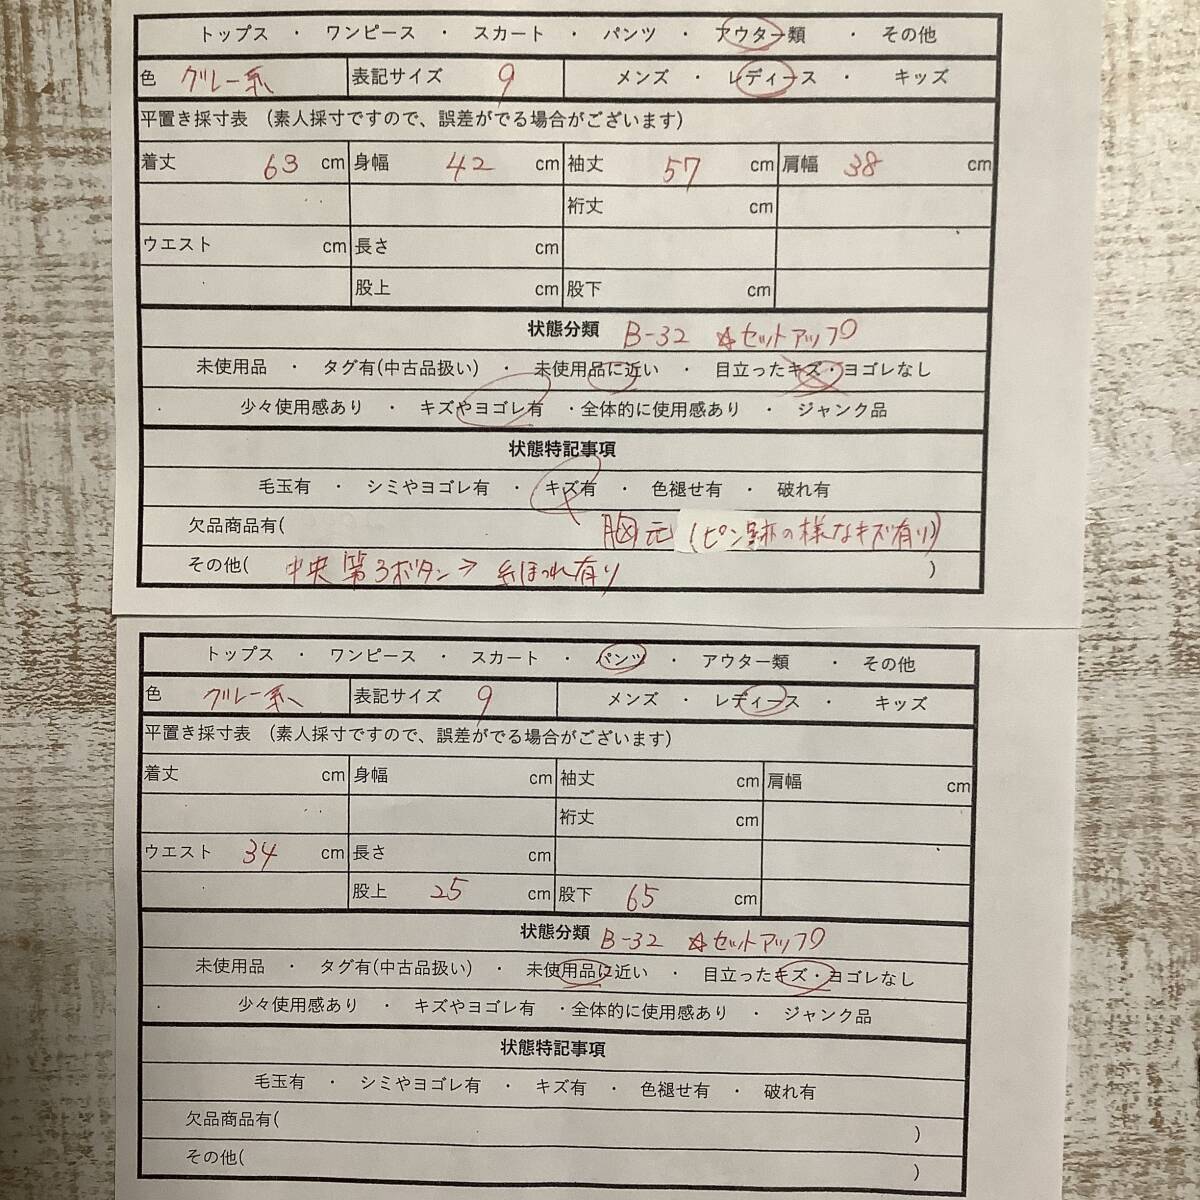 トップス ・ ワンピース ・ スカート ・ パンツ ・ アウター類 ・ その他
色 グレー系 表記サイズ 9 メンズ ・ レディース ・ キッズ
平置き採寸表 (素人採寸ですので、誤差がでる場合がございます)
着丈 63 cm 身幅 42 cm 袖丈 57 cm 肩幅 38 cm
裄丈 cm
ウエスト cm 長さ cm
股上 cm 股下 cm
状態分類 B-32 ☆セットアップ
未使用品 ・ タグ有(中古品扱い) ・ 未使用品に近い ・ 目立ったキズ・ヨゴレなし
少々使用感あり ・ キズやヨゴレ有 ・全体的に使用感あり ・ ジャンク品
状態特記事項
毛玉有 ・ シミやヨゴレ有 ・ キズ有 ・ 色褪せ有 ・ 破れ有
欠品商品有( 胸元 (ピン跡の様なキズ有り))
その他( 中央第3ボタン→糸ほつれ有り )
トップス ・ ワンピース ・ スカート ・ パンツ ・ アウター類 ・ その他
色 グレー系 表記サイズ 9 メンズ ・ レディース ・ キッズ
平置き採寸表 (素人採寸ですので、誤差がでる場合がございます)
着丈 cm 身幅 cm 袖丈 cm 肩幅 cm
裄丈 cm
ウエスト 34 cm 長さ cm
股上 25 cm 股下 65 cm
状態分類 B-32 ☆セットアップ
未使用品 ・ タグ有(中古品扱い) ・ 未使用品に近い ・ 目立ったキズ・ヨゴレなし
少々使用感あり ・ キズやヨゴレ有 ・全体的に使用感あり ・ ジャンク品
状態特記事項
毛玉有 ・ シミやヨゴレ有 ・ キズ有 ・ 色褪せ有 ・ 破れ有
欠品商品有( )
その他( )